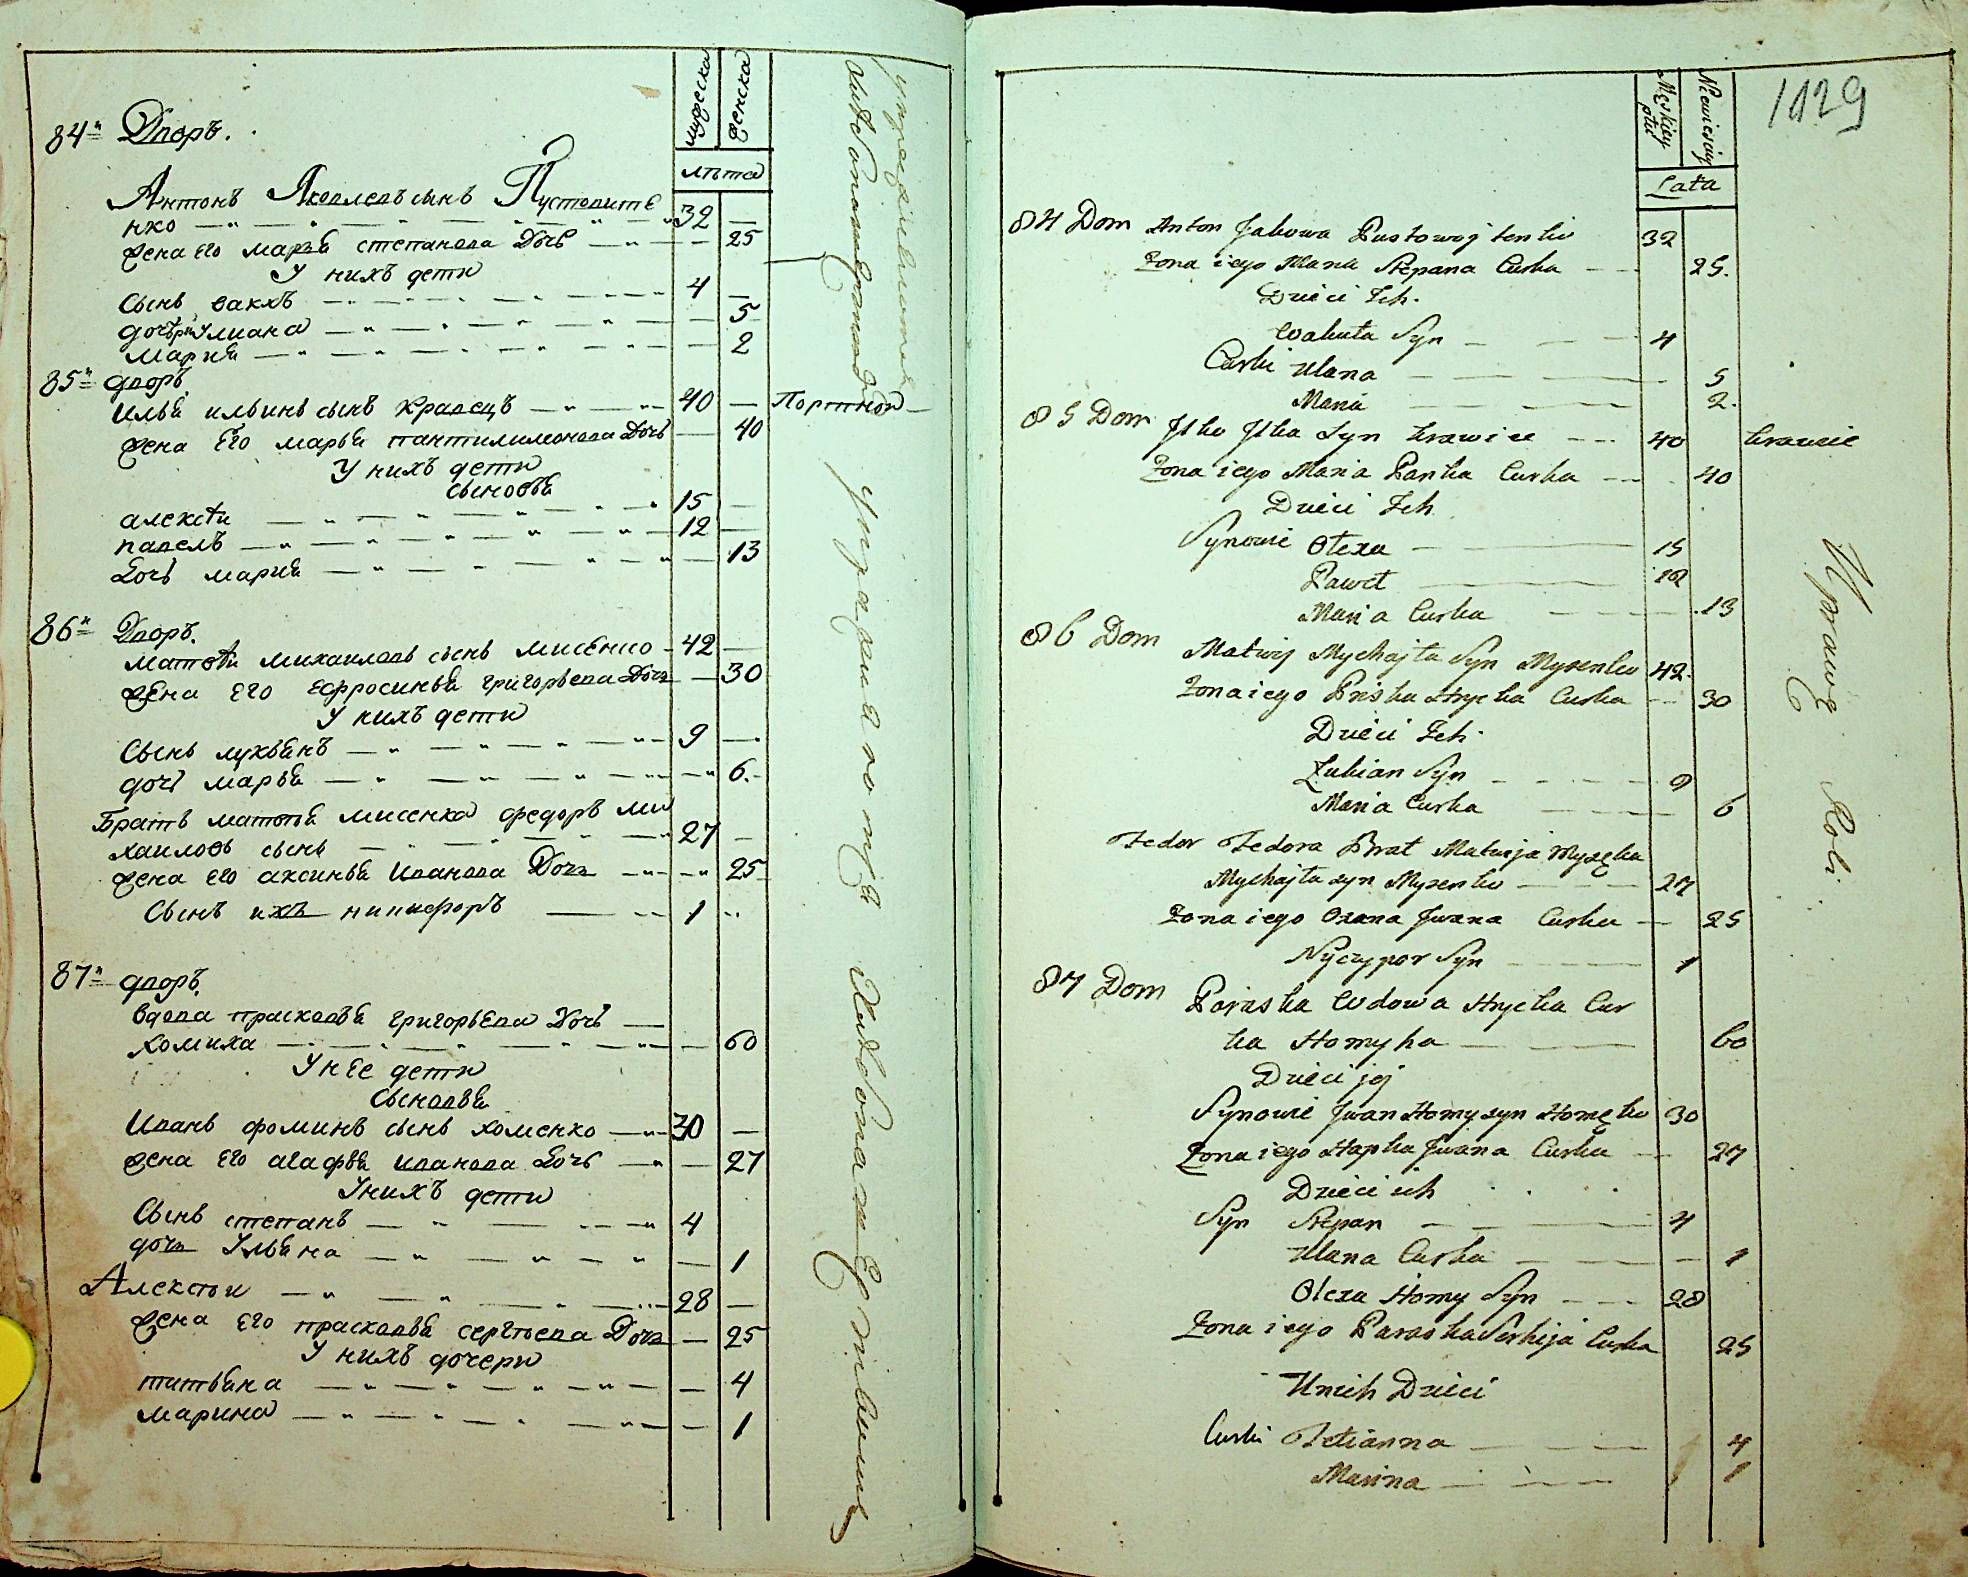 мужеска
женска
лѣта
84й Дворъ.
Антонъ Яковлевъ сынъ Пустовите
нко 32
жена его марья степанова Дочь 25
У нихъ дети
Сынъ вакхъ 4
дочери Улиана 5
Мария 2
85й дворъ.
Илья ильинъ сынъ Кравецъ 40 Портной
жена Его марья пантилимонова Дочь 40
У нихъ дети
сыновья
алексѣй 15
павелъ 12
Дочь мария 13
86й Дворъ.
матвѣй михаиловъ сынъ мисенко 42
жена Его Ефросинья григорьева Дочь 30
У нихъ дети
Сынъ лукьянъ 9
дочь марья 6
Братъ матвѣя мисенка федоръ ми
хаиловъ сынъ 27
жена Его аксинья Иванова Дочь 25
Сынъ ихъ никифоръ 1
87й дворъ.
вдова прасковья григорьева Дочь
Хомиха 60
У нЕе дети
Сыновья
Иванъ фоминъ сынъ хоменко 30
жена Его агафья Иванова Дочь 27
У нихъ дети
Сынъ степанъ 4
дочь Ульяна 1
Алексѣи 28
жена Его прасковья сергѣева Дочь 25
У нихъ дочери
татьяна 4
марина 1
1129
Męzkiey płci
Niewiesciey
Lata
84 Dom Anton Jakowa Pustowojtenko 32
Zona iego Maria Stepana Curka 25.
Dzieci Ich.
Wakuła Syn 4
Curki Ulana 5
Maria 2.
85 Dom Ilko Ilka Syn krawiec 40 krawiec
Zona iego Maria Pańka Curka 40
Dzieci Ich
Synowie Ołexa 15
Paweł 12
Maria Curka 13
86 Dom Matwij Mychajła Syn Mysenko 42.
Zona iego Priska Hryćka Curka 30
Dzieci Ich.
Łukian Syn 9
Maria Curka 6
Fedor Fedora Brat Matwija Mysęka
Mychajła syn Mysenko 27
Zona iego Oxana Jwana Curka 25
Nyczypor Syn 1
87 Dom Paraska Wdowa Hryćka Cur
ka Homyha 60
Dzieci jej
Synowie Jwan Homy syn Homęko 30
Zona iego Hapka Jwana Curka 27
Dzieci ich
Syn Stepan 4
Ulana Curka 1
Olexa Homy Syn 28
Zona iego Paraska Serhija Curka 25
Unich Dzieci
Curki Tetianna 4
Marina 1
Uprawą Roli.